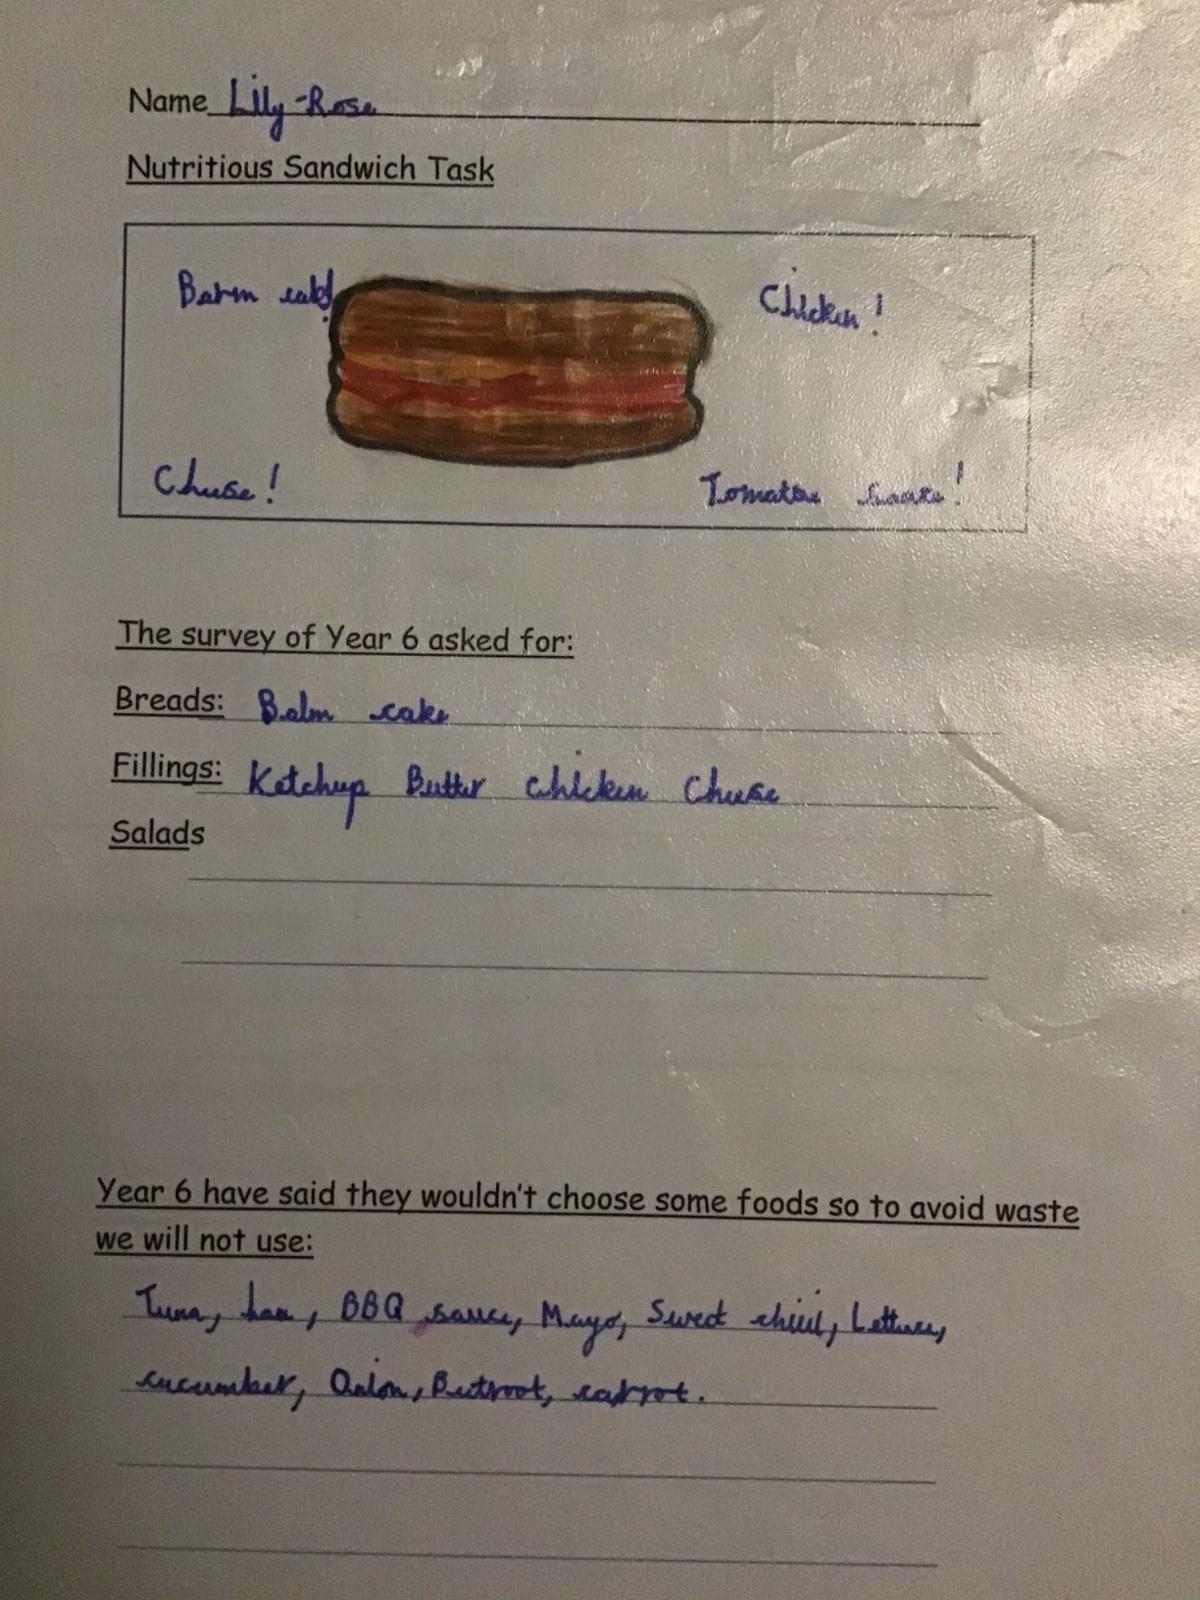 Name Lily-Rose
Nutritious Sandwich Task
Barm cake! Chicken!
Cheese! Tomatoe sauce!
The survey of Year 6 asked for:
Breads: Balm cake
Fillings: Ketchup Butter chicken Cheese
Salads
Year 6 have said they wouldn't choose some foods so to avoid waste
we will not use:
Tuna, ham, BBQ sauce, Mayo, Sweet chilli, Lettuce,
cucumber, Onion, Beetroot, carrot.